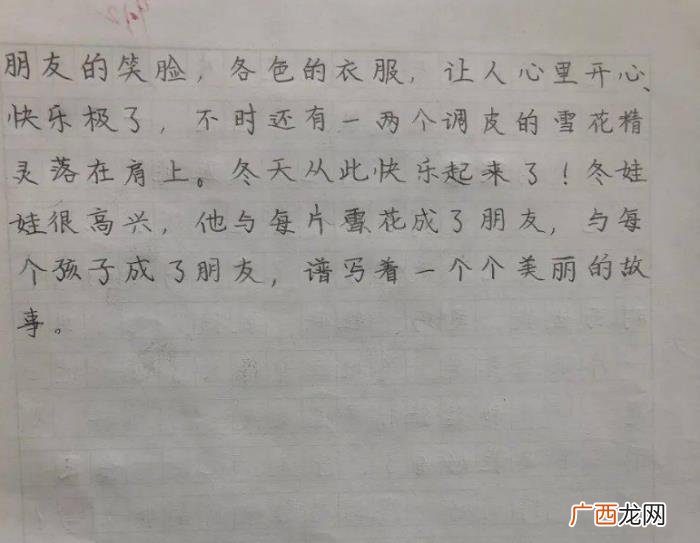 朋友的笑脸，各色的衣服，让人心里开心、
快乐极了，不时还有一两个调皮的雪花精
灵落在肩上。冬天从此快乐起来了！冬娃
娃很高兴，他与每片雪花成了朋友，与每
个孩子成了朋友，谱写着一个个美丽的故
事。
广西龙网